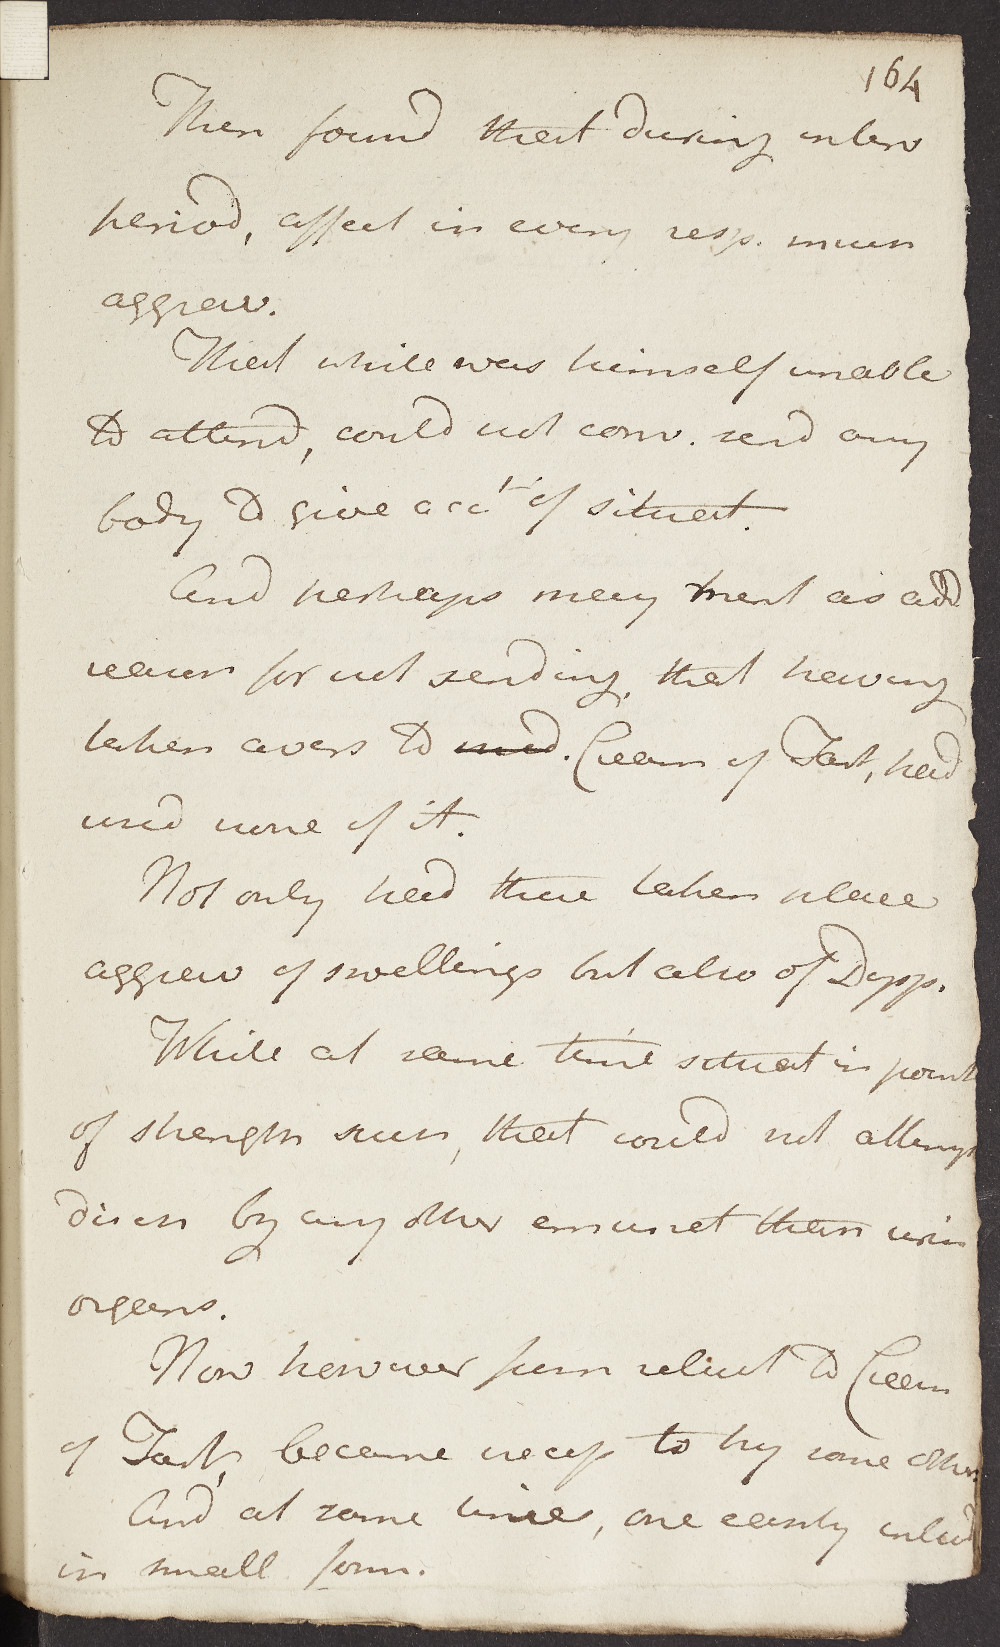 164
Then found that during interv
period, affect in every resp. much
aggrav.
That while was himself unable
to attend, could not conv. send any
body to give acct. of situat.
And perhaps may ment as add
reason for not sending, that having
taken avers to Cream of Tart, had
used none of it.
Not only had there taken place
aggrav of swellings but also of Dysp.
While at same time situat in point
of strength such, that could not attempt
discu by any other emunct than urin
organs.
Now however from reluct to Cream
of Tart, became necess to try some other
And at same time, one easily
in small form.